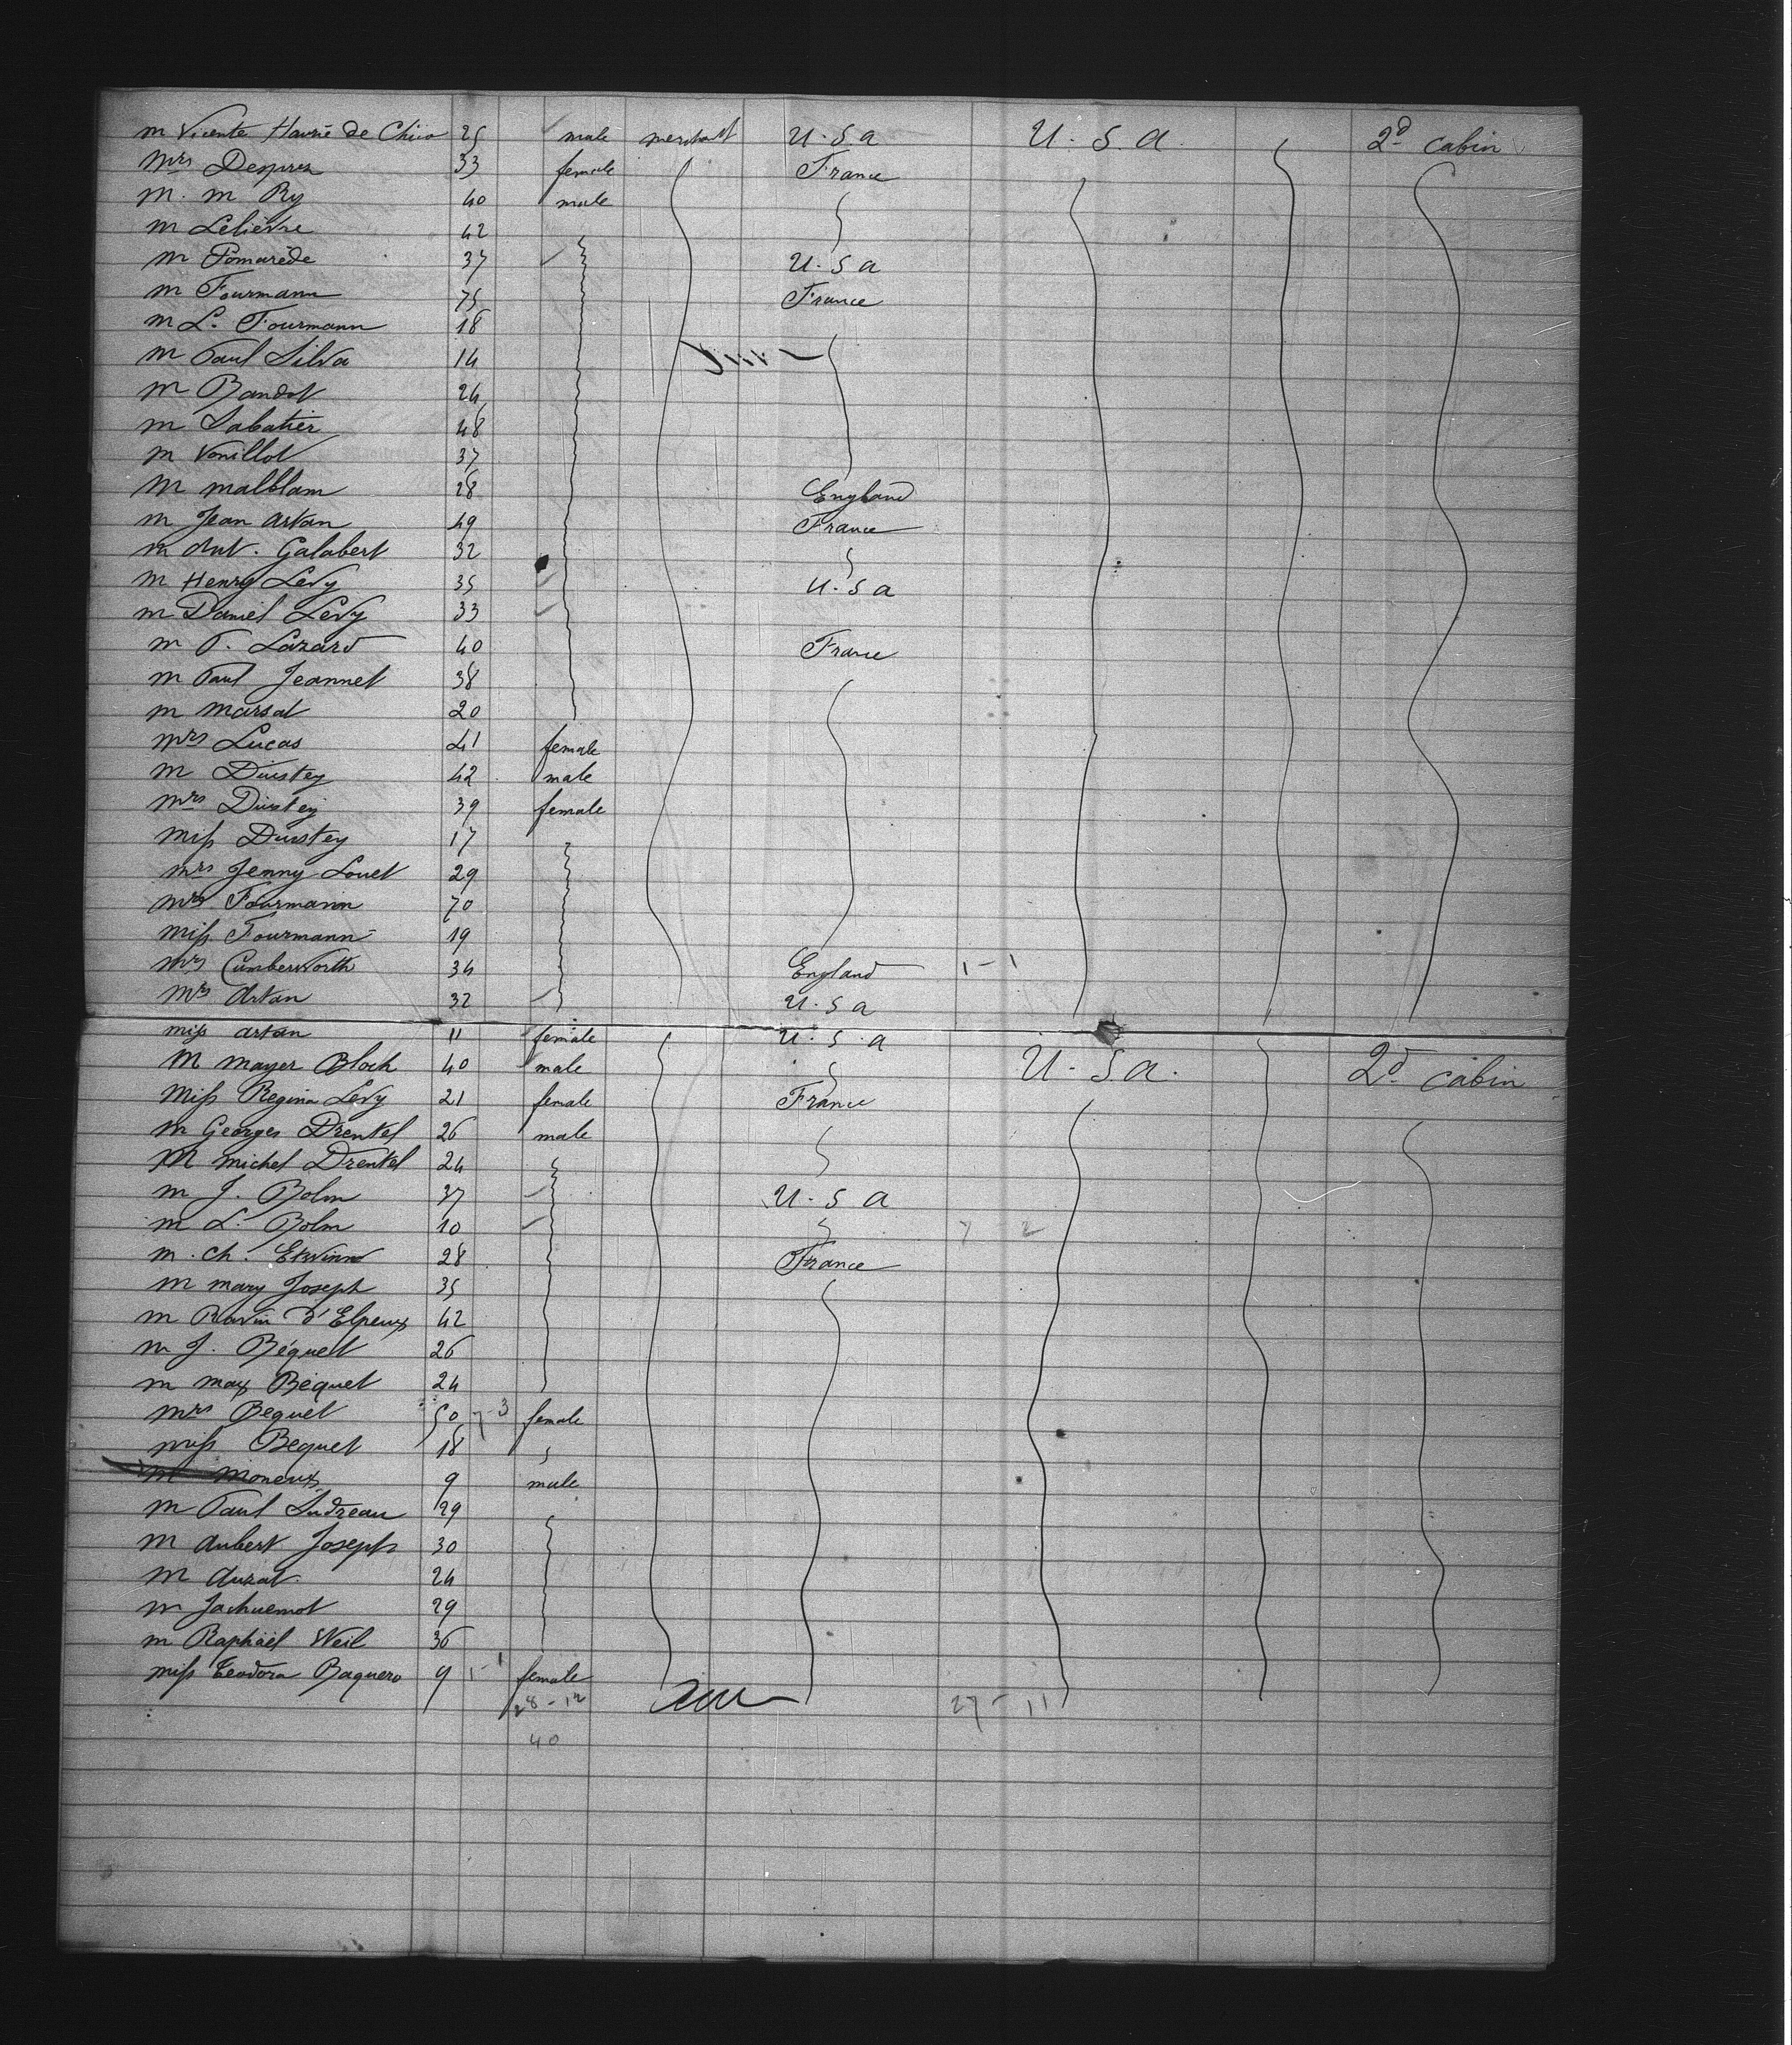 M Vicente Havrie de Chico 25 male merchant U.S.A U.S.A. 2d cabin
Mrs Desprez 33 female France
M. M Ry 40 male
M Lelièvre 42
M Pomarède 37 U.S.A
M Fourmann 75 France
M L. Fourmann 18
M Paul Silva 14
M Bandot 24
M Sabatier 48
M Vonillot 37
M Malblam 28 England
M Jean Artan 49 France
M Ant. Galabert 32
M Henry Levy 35 U.S.A
M Daniel Levy 33
M P. Lazard 40 France
M Paul Jeannet 38
M Marsat 20
Mrs Lucas 41 female
M Duistey 42 male
Mrs Duistey 39 female
Miss Duistey 17
Mrs Jenny Louet 29
Mrs Fourmann 70
Miss Fourmann 19
Mrs Cumberworth 34 England 1-1
Mrs Artan 32 U.S.A
Miss Artan 11 female U.S.A
M Mayer Bloch 40 male U.S.A. 2d cabin
Miss Regina Levy 21 female France
M Georges Drentel 26 male
M Michel Drentel 24
M J. Bolm 37 U.S.A
M L. Bolm 10 7 2
M. Ch. 28 France
M Mary Joseph 35
M d'Elpeux 42
M J. Béquet 26
M Max Béquet 24
Mrs Bequet 50 7-3 female
Miss Bequet 18
M Moneux 9 male
M Paul Sudreau 29
M Aubert Joseph 30
M Auzat 24
M Jachuemot 29
M Raphaël Weil 36
Miss Teodora Baquero 9 1-1 female
28-12 27-11
40